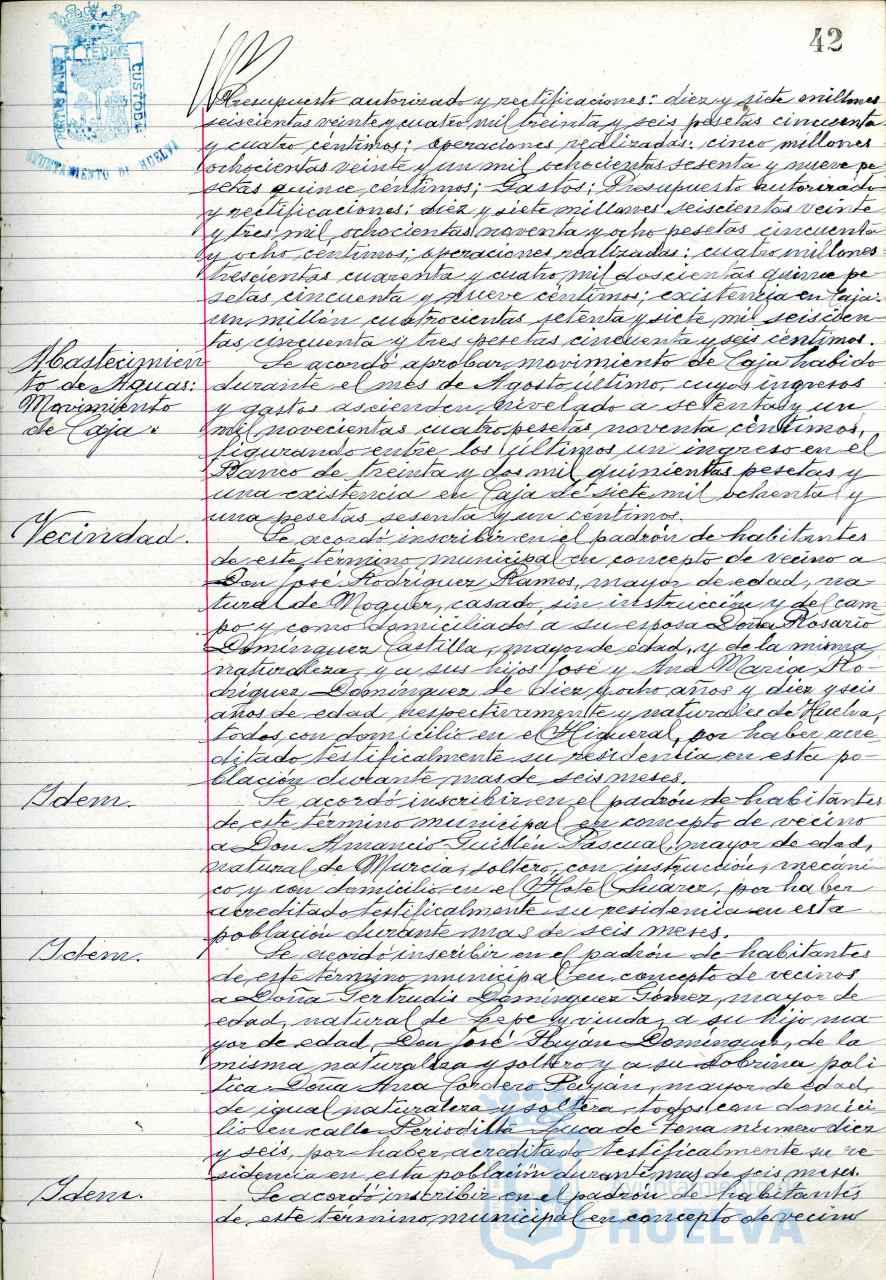 42
PORTUS MARIS ET TERRE CUSTODIA
AYUNTAMIENTO DE HUELVA
Presupuesto autorizado y rectificaciones: diez y siete millones
seiscientas veinte y cuatro mil treinta y seis pesetas cincuenta
y cuatro céntimos; operaciones realizadas: cinco millones
ochocientas veinte y un mil ochocientas sesenta y nueve pe-
setas quince céntimos; Gastos: Presupuesto autorizado
y rectificaciones: diez y siete millones seiscientas veinte
y tres mil ochocientas noventa y ocho pesetas cincuenta
y ocho céntimos; operaciones realizadas: cuatro millones
trescientas cuarenta y cuatro mil doscientas quince pe-
setas cincuenta y nueve céntimos; existencia en Caja:
un millón cuatrocientas setenta y siete mil seiscien-
tas cincuenta y tres pesetas cincuenta y seis céntimos.
Abastecimien-
to de Aguas:
Movimiento
de Caja.
Se acordó aprobar movimiento de Caja habido
durante el mes de Agosto último, cuyos ingresos
y gastos ascienden nivelado a setenta y un
mil novecientas cuatro pesetas noventa céntimos,
figurando entre los últimos un ingreso en el
Banco de treinta y dos mil quinientas pesetas y
una existencia en Caja de siete mil ochenta y
una pesetas sesenta y un céntimos.
Vecindad.
Se acordó inscribir en el padrón de habitantes
de este término municipal en concepto de vecino a
Don José Rodríguez Ramos, mayor de edad, na-
tural de Moguer, casado, sin instrucción y del cam-
po y como domiciliados a su esposa Doña Rosario
Domínguez Castilla, mayor de edad, y de la misma
naturaleza y a sus hijos José y Ana María Ro-
dríguez Domínguez de diez y ocho años y diez y seis
años de edad respectivamente y naturales de Huelva,
todos con domicilio en el Higueral, por haber acre-
ditado testificalmente su residencia en esta po-
blación durante mas de seis meses.
Idem.
Se acordó inscribir en el padrón de habitantes
de este término municipal en concepto de vecino
a Don Amancio Guillén Pascual, mayor de edad,
natural de Murcia, soltero, con instrucción, mecáni-
co y con domicilio en el Hotel Suarez, por haber
acreditado testificalmente su residencia en esta
población durante mas de seis meses.
Idem.
Se acordó inscribir en el padrón de habitantes
de este término municipal en concepto de vecinos
a Doña Gertrudis Domínguez Gómez, mayor de
edad, natural de Lepe y viuda, a su hijo ma-
yor de edad Don José Domínguez, de la
misma naturaleza y soltero y a su sobrina polí-
tica Doña Ana Cordero mayor de edad,
de igual naturaleza y soltera, todos con domici-
lio en calle Periodista Luca de Tena número diez
y seis, por haber acreditado testificalmente su re-
sidencia en esta población durante mas de seis meses.
Idem.
Se acordó inscribir en el padrón de habitantes
de este término municipal en concepto de vecino
Ayuntamiento de
HUELVA